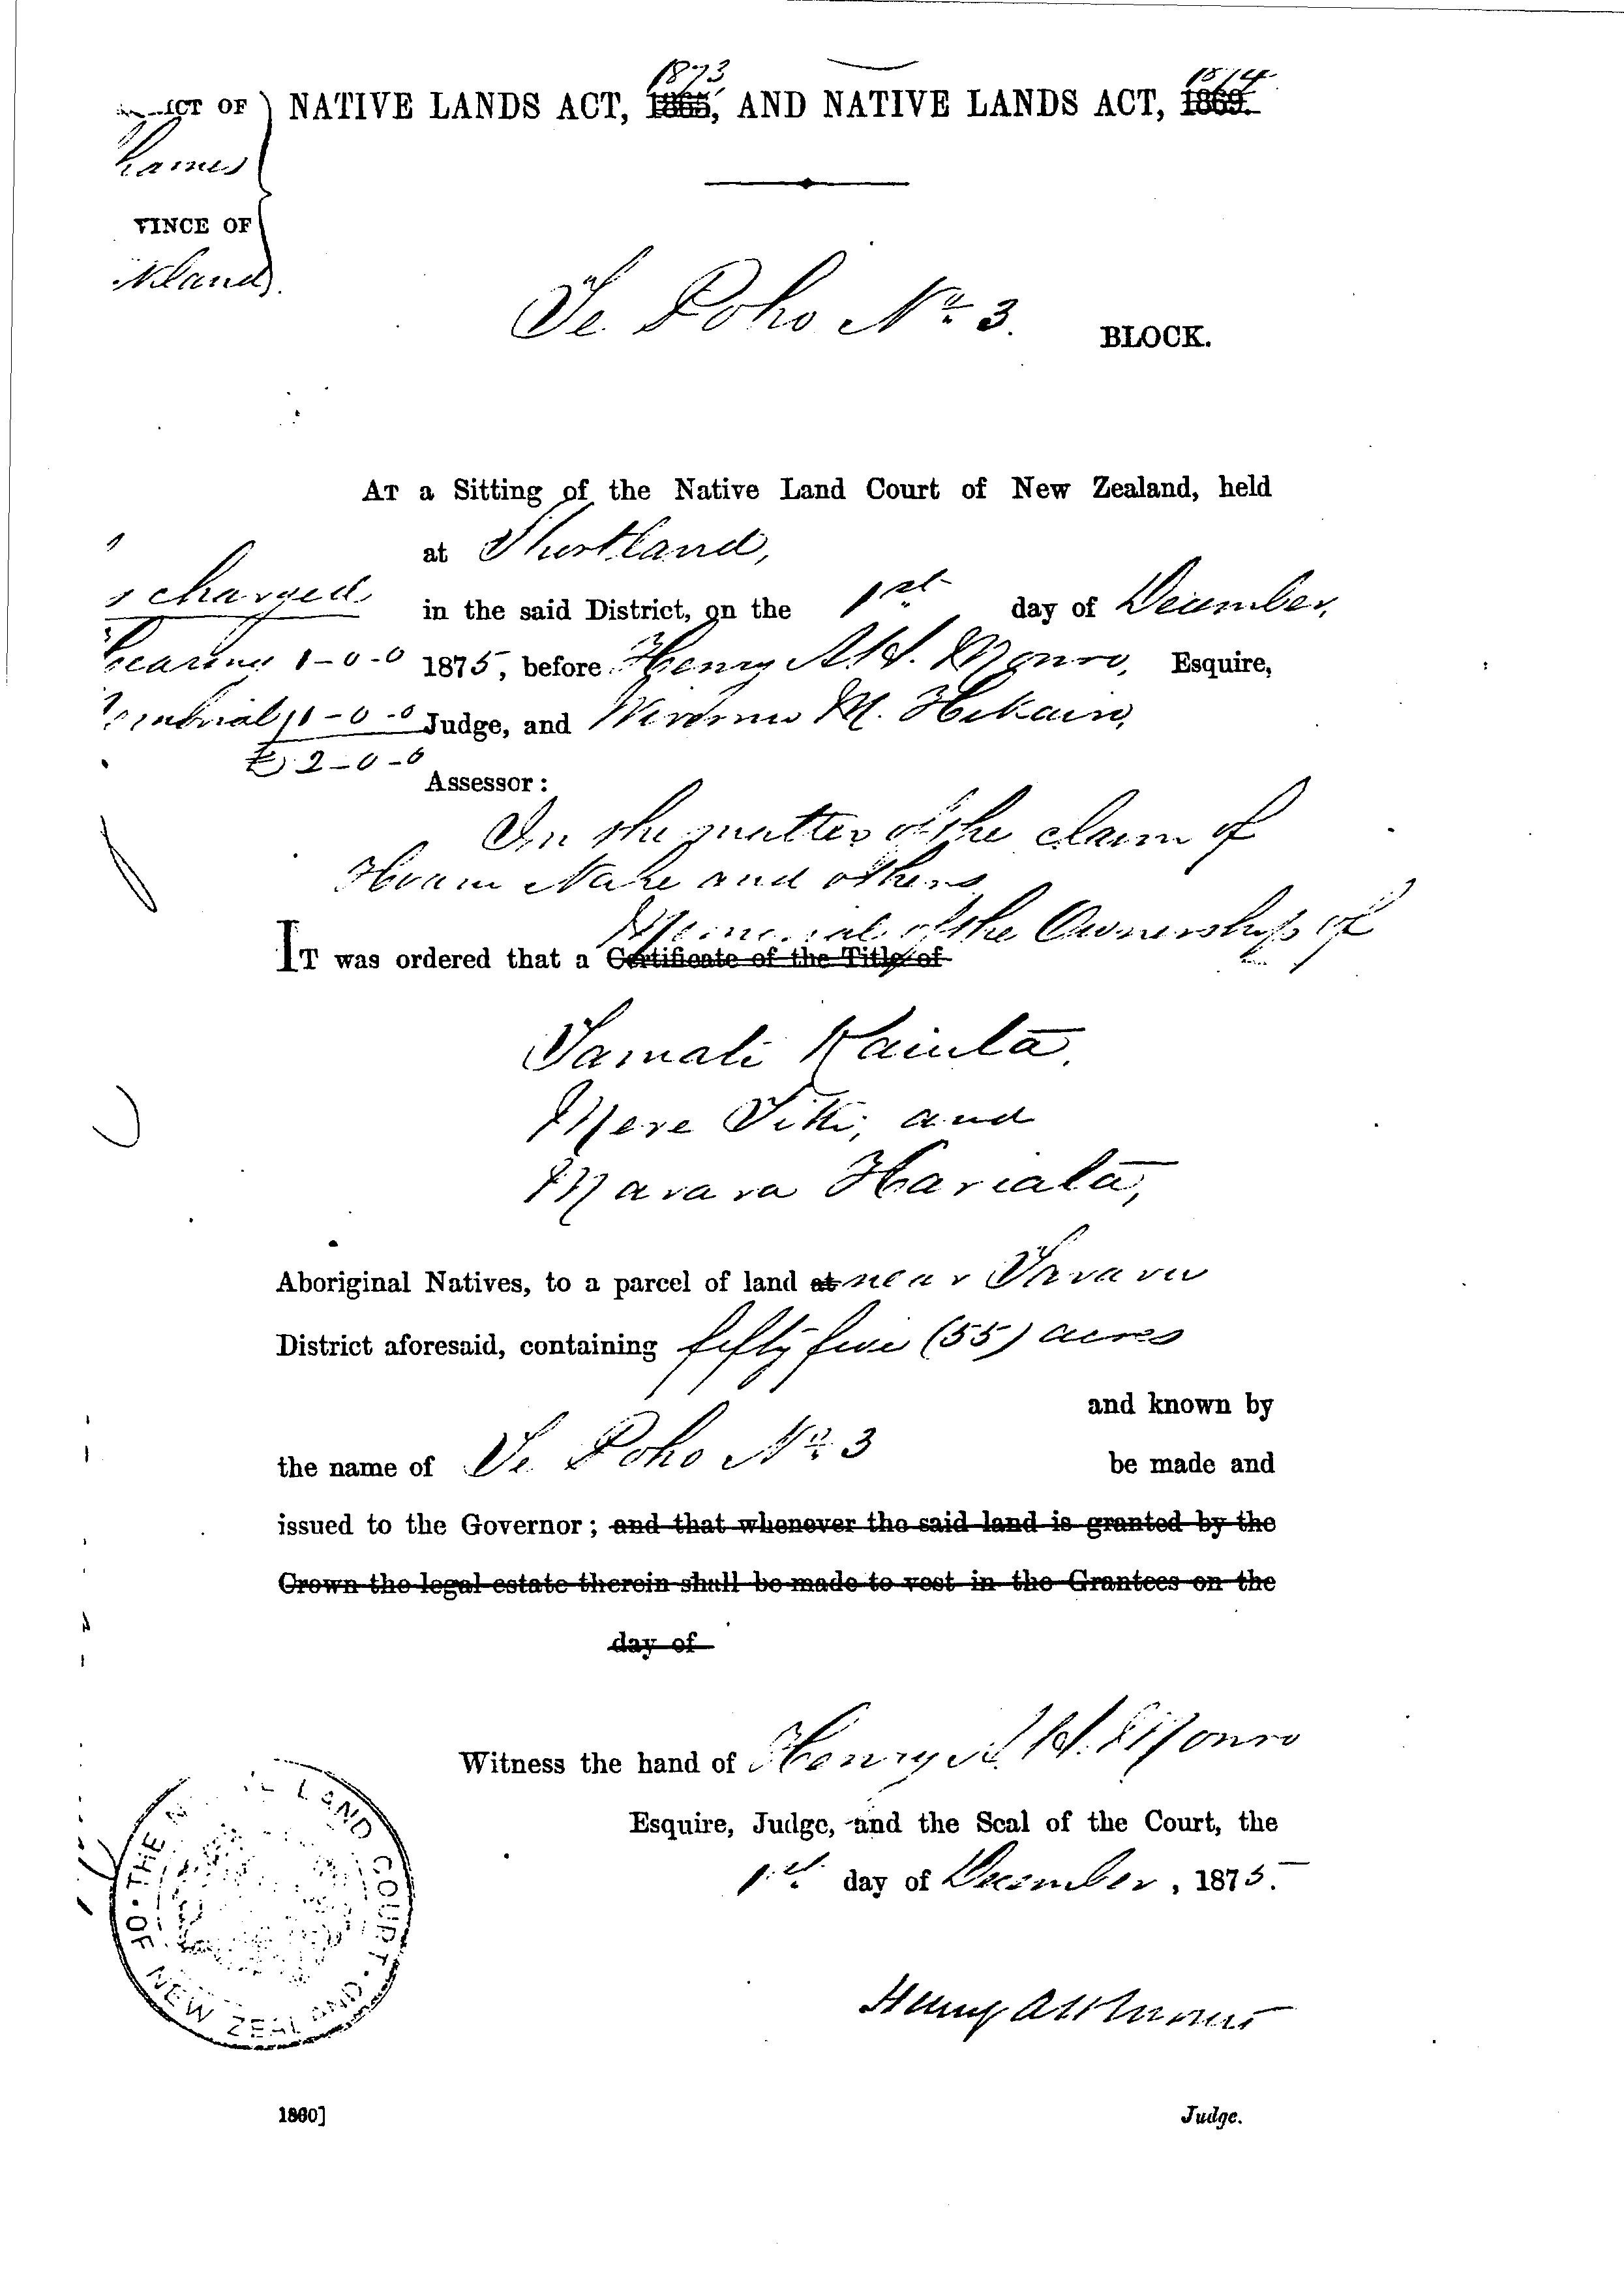 1873 1874
ICT OF NATIVE LANDS ACT, 1865, AND NATIVE LANDS ACT, 1869.
hames
VINCE OF
kland
Te Poho No. 3. BLOCK.
AT a Sitting of the Native Land Court of New Zealand, held
at Shortland,
charged in the said District, on the 1st day of December,
hearing 1-0-0 1875, before Henry A. H. Monro, Esquire,
1-0-0 Judge, and M. Hikairo,
£2-0-0
Assessor:
In the matter of the claim of
Nahe and others
Memorial of the Ownership of
IT was ordered that a Certificate of the Title of
Tamati
Mere Titi, and
Marara Hariata,
Aboriginal Natives, to a parcel of land at near Tararu
District aforesaid, containing fifty five (55) acres
and known by
the name of Te Poho No. 3 be made and
issued to the Governor; and that whenever the said land is granted by the
Crown the legal estate therein shall be made to vest in the Grantees on the
day of
Witness the hand of Henry A. H. Monro
Esquire, Judge, and the Seal of the Court, the
1st day of December, 1875.
OF THE NATIVE LAND COURT OF NEW ZEALAND
Henry A H Monro
1860] Judge.